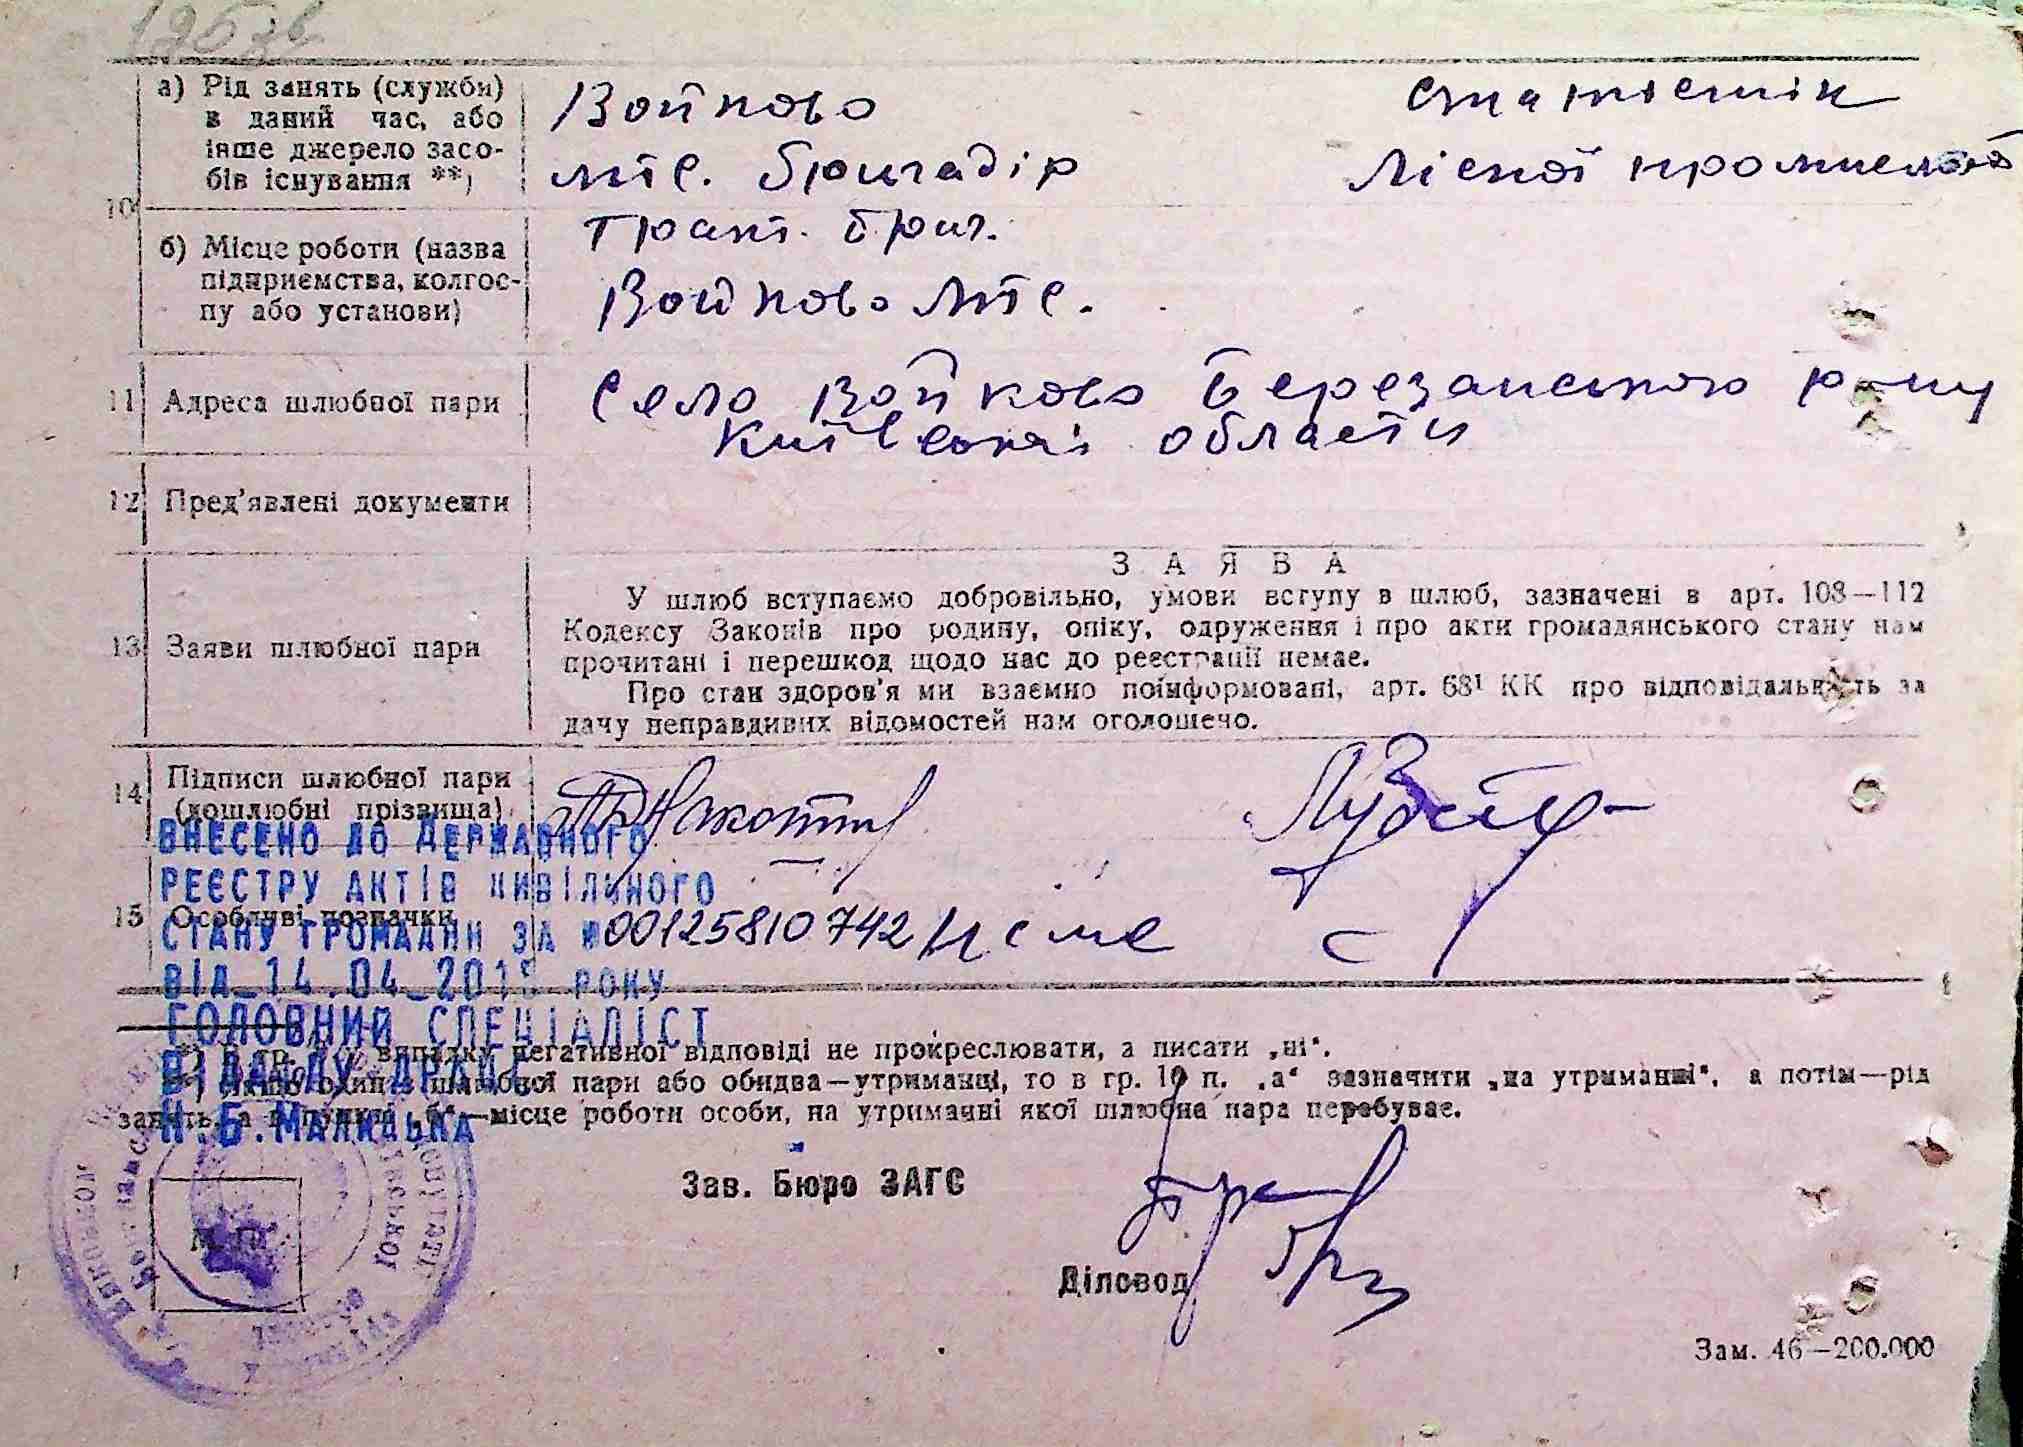 а) Рід занять (служби)
в даний час, або
інше джерело засо-
бів існування **)
Войково
мтс. бригадір
тракт. бриг.
статістік
лісної
10
б) Місце роботи (назва
підприємства, колгос-
пу або установи)
Войково мтс.
11 Адреса шлюбної пари
село Войково Березанського р-ну
Київської области
12 Пред'явлені документи
13 Заяви шлюбної пари
ЗАЯВА
У шлюб вступаємо добровільно, умови вступу в шлюб, зазначені в арт. 108—112
Кодексу Законів про родину, опіку, одруження і про акти громадянського стану нам
прочитані і перешкод щодо нас до реєстрації немає.
Про стан здоров'я ми взаємно поінформовані, арт. 68¹ КК про відповідальність за
дачу неправдивих відомостей нам оголошено.
14 Підписи шлюбної пари
(дошлюбні прізвища)
15 Особливі позначки
ВНЕСЕНО ДО ДЕРЖАВНОГО
РЕЄСТРУ АКТІВ ЦИВІЛЬНОГО
СТАНУ ГРОМАДЯН ЗА № 00125810742
ВІД 14.04.2018 РОКУ
ГОЛОВНИЙ СПЕЦІАЛІСТ
ВІДДІЛУ ДРАЦС
Н.Б.
*) В гр. у випадку негативної відповіді не прокреслювати, а писати „ні“.
**) Якщо один з шлюбної пари або обидва—утриманці, то в гр. 10 п. „а“ зазначити „на утриманні“, а потім—рід
занять, а в пункті „б“—місце роботи особи, на утриманні якої шлюбна пара перебуває.
Зав. Бюро ЗАГС
Діловод
М. П.
Зам. 46—200.000